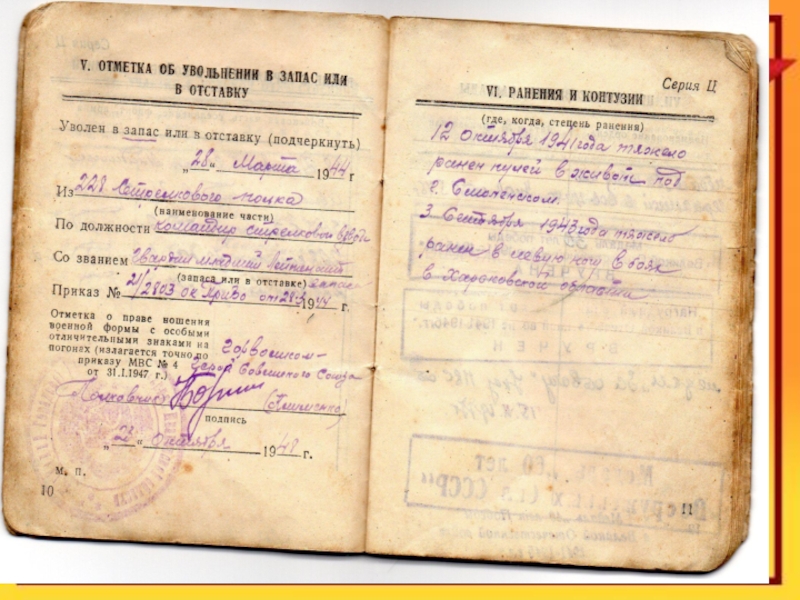 V. ОТМЕТКА ОБ УВОЛЬНЕНИИ В ЗАПАС ИЛИ
В ОТСТАВКУ
Уволен в запас или в отставку (подчеркнуть)
„28“ Марта 1944 г
Из 228 Стрелкового полка
(наименование части)
По должности командир стрелковой взвода
Со званием Гвардии младший лейтенант
(запаса или в отставке) запаса
Приказ № 21/2803 от 28.3 1944
Отметка о праве ношения
военной формы с особыми
отличительными знаками на
погонах (излагается точно по
приказу МВС № 4
от 31.I.1947 г.)
Горвоенком-
Советского Союза
Полковник
подпись
„2“ октября 1948 г.
м. п.
10
Серия Ц
VI. РАНЕНИЯ И КОНТУЗИИ
(где, когда, степень ранения)
12 октября 1941 года тяжело
ранен пулей в живот под
г. Смоленском.
3 Сентября 1943 года тяжело
ранен в левую ногу в боях
в Харьковской области
11